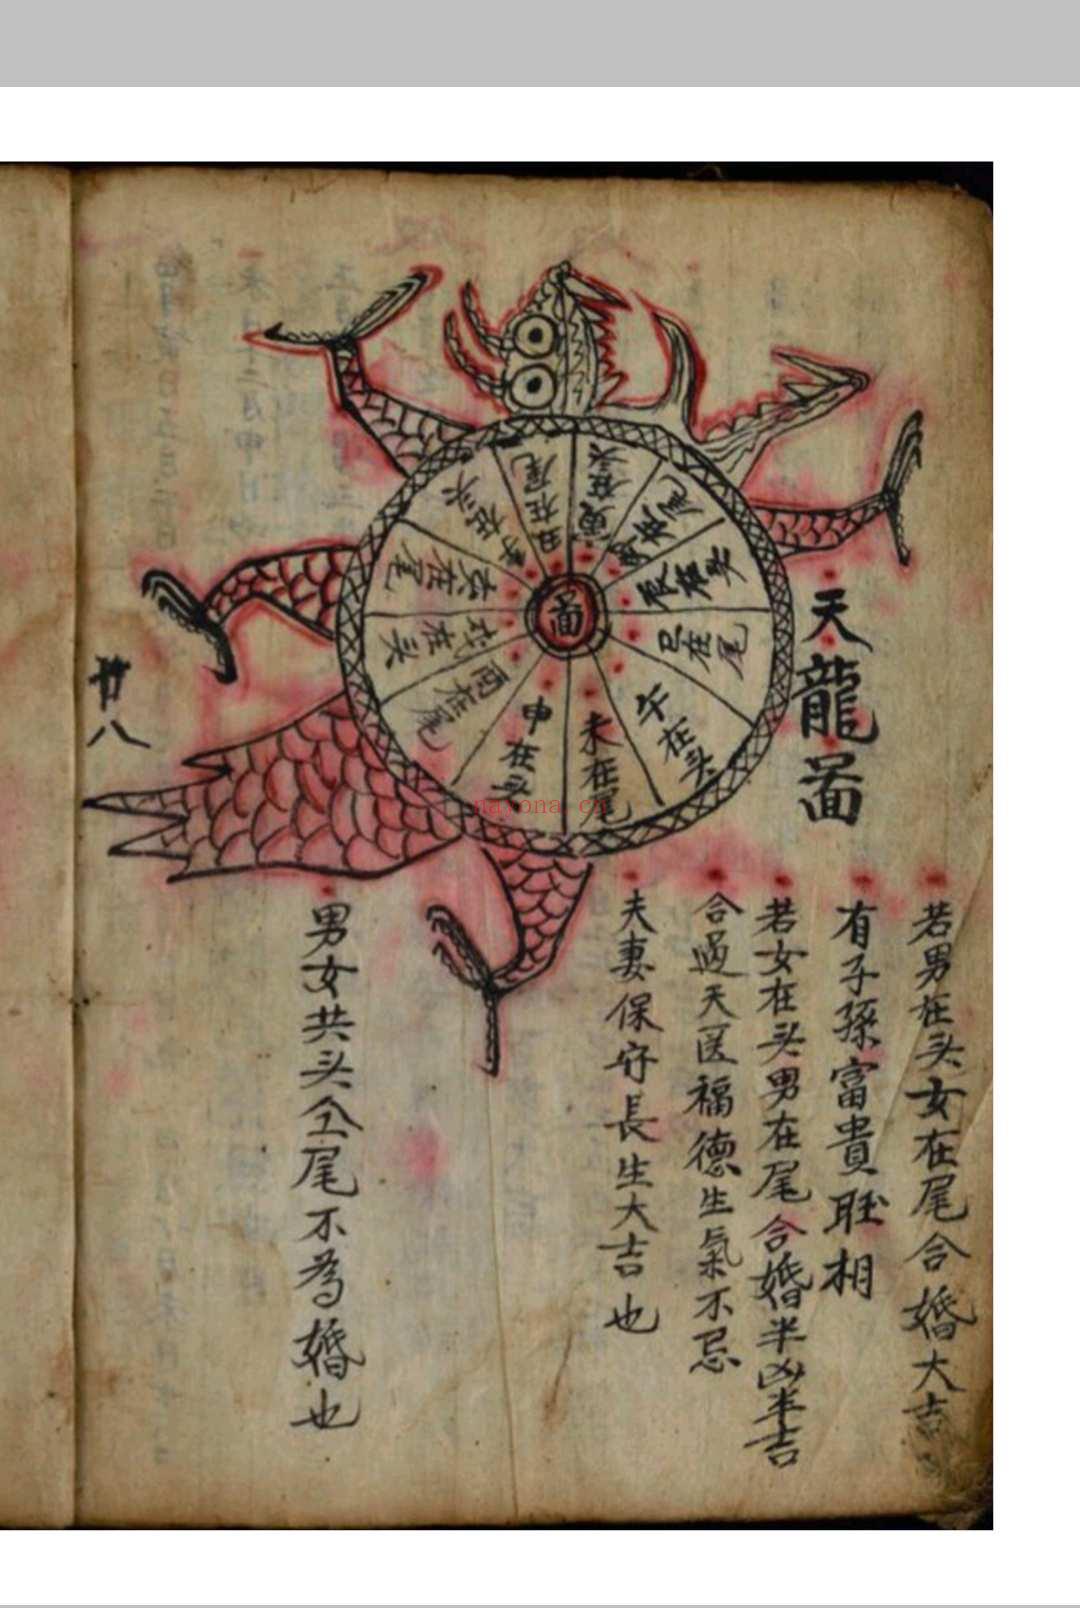 天龍啚
若男在头女在尾合婚大吉
有子孫富貴旺相
若女在头男在尾合婚半凶半吉
合過天医福德生氣不忌
夫妻保守長生大吉也
男女共头仝尾不為婚也
啚
子在头
丑在尾
寅在头
卯在尾
辰在头
巳在尾
午在头
未在尾
申在头
酉在尾
戌在头
亥在尾
廿八
nayona.cn